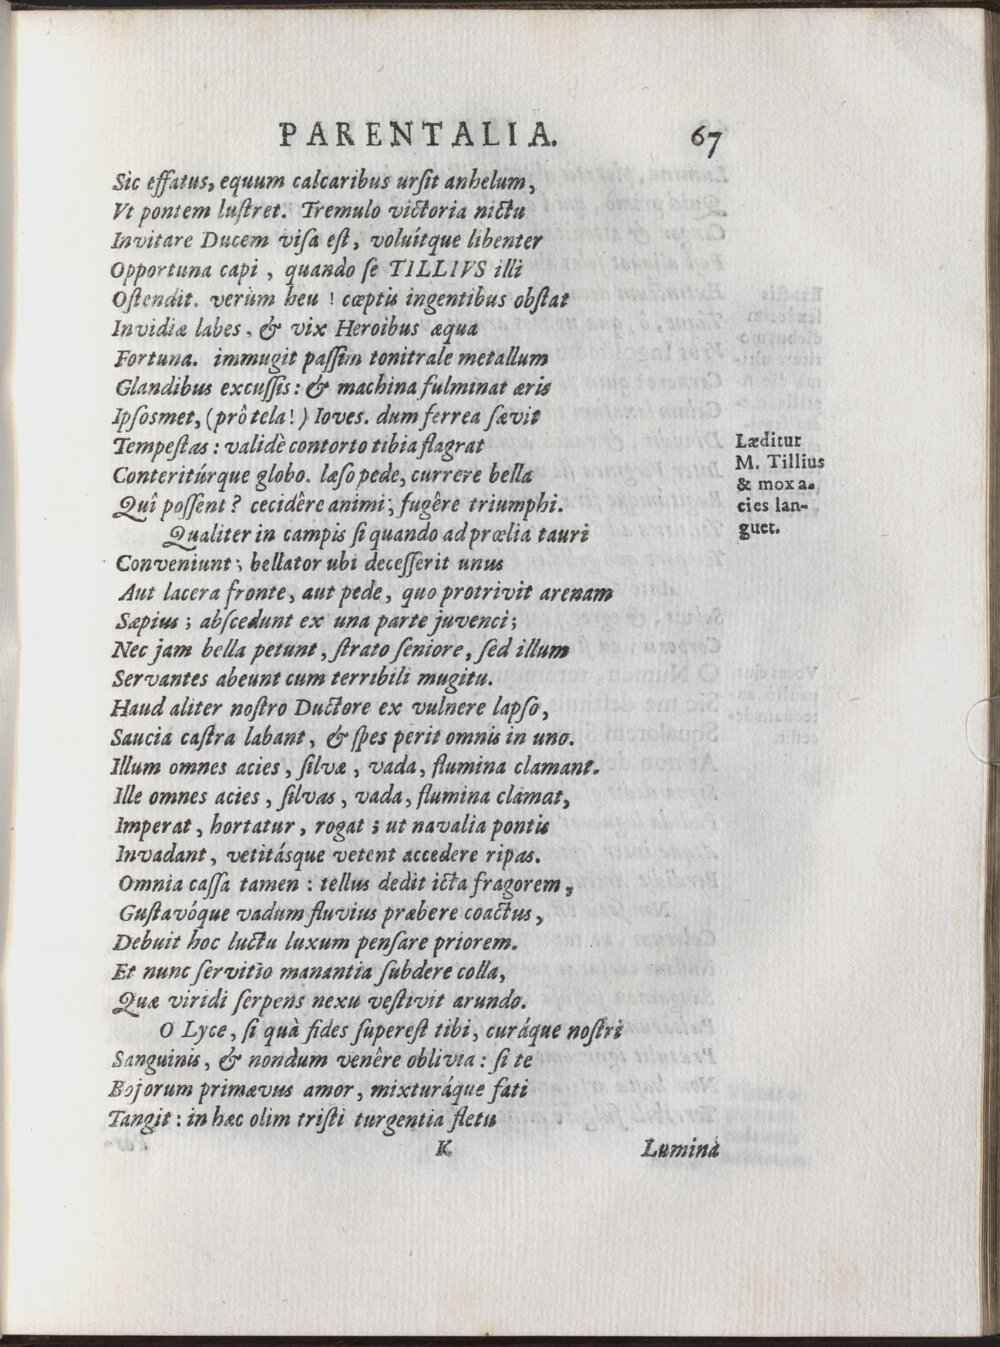 PARENTALIA. 67
Sic effatus, equum calcaribus ursit anhelum,
Vt pontem lustret. Tremulo victoria nictu
Invitare Ducem visa est, voluítque libenter
Opportuna capi, quando se TILLIVS illi
Ostendit. verùm heu! cœptis ingentibus obstat
Invidiæ labes, & vix Heroibus æqua
Fortuna. immugit passim tonitrale metallum
Glandibus excussis: & machina fulminat æris
Ipsosmet, (prô tela!) Ioves. dum ferrea sævit
Tempestas: validè contorto tibia flagrat
Conteritúrque globo. læso pede, currere bella
Quî possent? cecidêre animi; fugêre triumphi.
Qualiter in campis si quando ad prœlia tauri
Conveniunt; bellator ubi decesserit unus
Aut lacera fronte, aut pede, quo protrivit arenam
Sæpius; abscedunt ex una parte juvenci;
Nec jam bella petunt, strato seniore, sed illum
Servantes abeunt cum terribili mugitu.
Haud aliter nostro Ductore ex vulnere lapso,
Saucia castra labant, & spes perit omnis in uno.
Illum omnes acies, silvæ, vada, flumina clamant.
Ille omnes acies, silvas, vada, flumina clamat,
Imperat, hortatur, rogat; ut navalia pontis
Invadant, vetitásque vetent accedere ripas.
Omnia cassa tamen: tellus dedit icta fragorem,
Gustavóque vadum fluvius præbere coactus,
Debuit hoc luctu luxum pensare priorem.
Et nunc servitio manantia subdere colla,
Quæ viridi serpens nexu vestivit arundo.
O Lyce, si quà fides superest tibi, curáque nostri
Sanguinis, & nondum venêre oblivia: si te
Bojorum primævus amor, mixturáque fati
Tangit: in hac olim tristi turgentia fletu
K Lumina
Læditur
M. Tillius
& mox a-
cies lan-
guet.